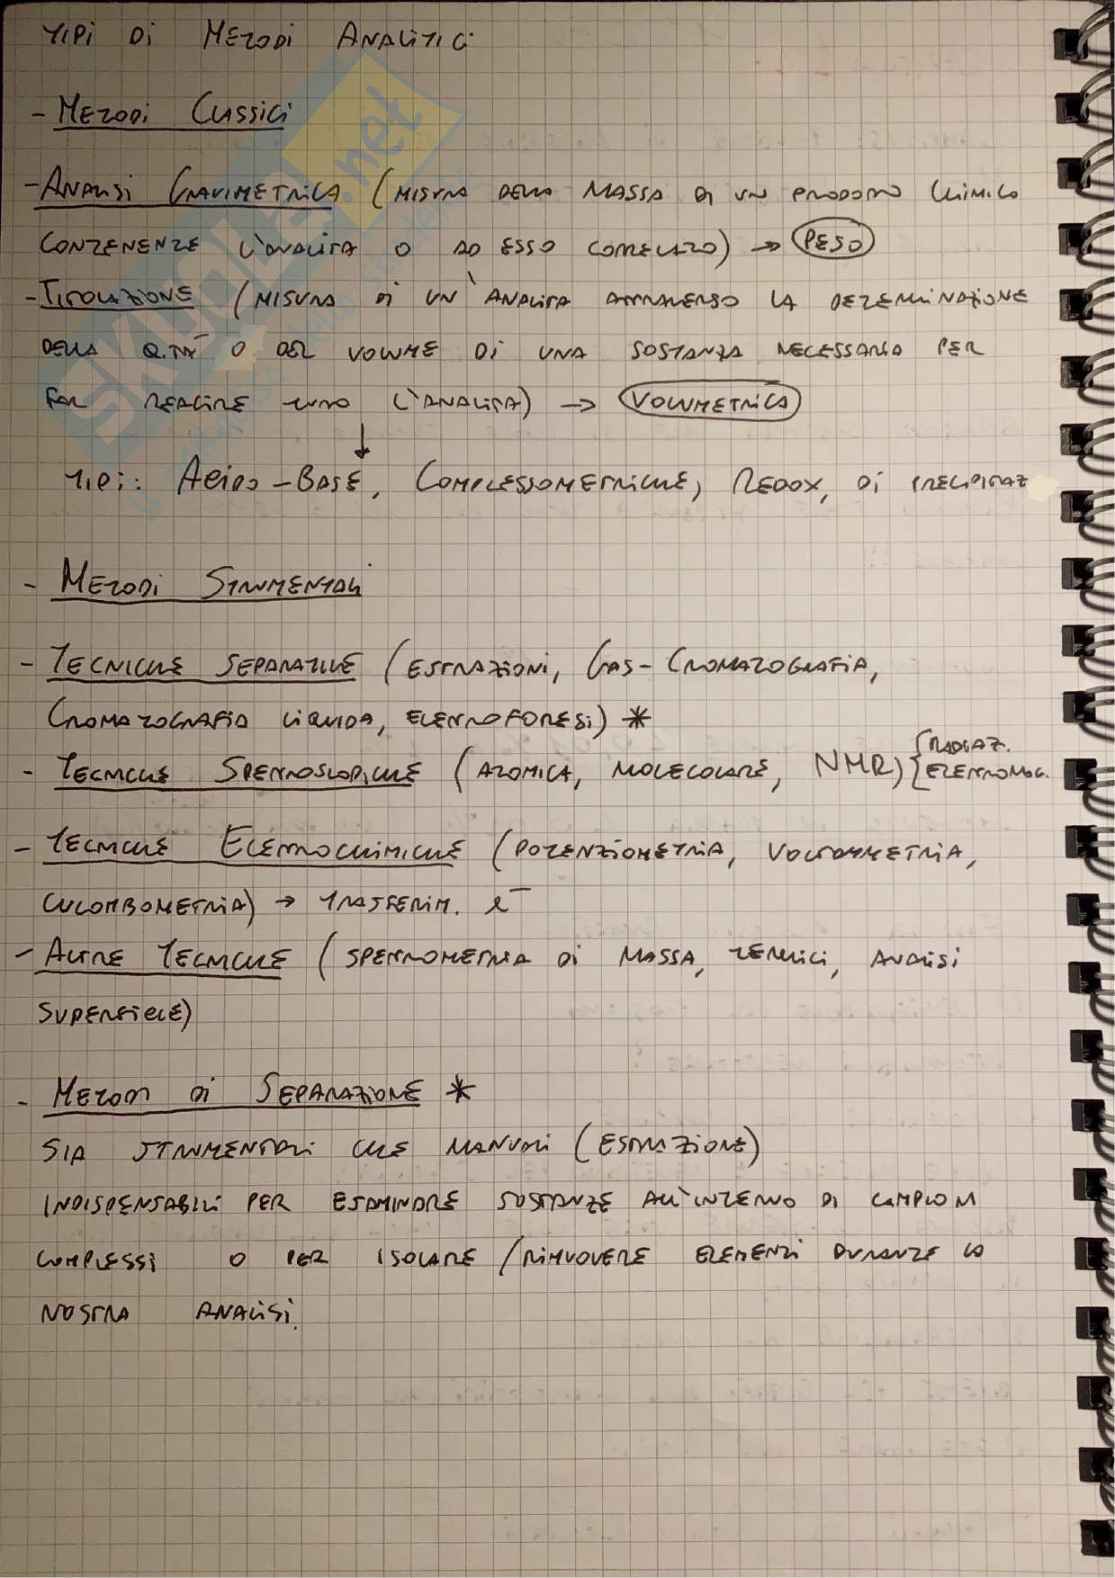 TIPI DI METODI ANALITICI
- METODI CLASSICI
- ANALISI GRAVIMETRICA (MISURA DELLA MASSA DI UN PRODOTTO CHIMICO
CONTENENTE L'ANALITA O AD ESSO CORRELATO) → PESO
- TITOLAZIONE (MISURA DI UN'ANALITA ATTRAVERSO LA DETERMINAZIONE
DELLA Q.TÀ O DEL VOLUME DI UNA SOSTANZA NECESSARIA PER
FAR REAGIRE TUTTO L'ANALITA) → VOLUMETRICA
↓
TIPI: ACIDO-BASE, COMPLESSOMETRICHE, REDOX, DI PRECIPITAZ
- METODI STRUMENTALI
- TECNICHE SEPARATIVE (ESTRAZIONI, GAS-CROMATOGRAFIA,
CROMATOGRAFIA LIQUIDA, ELETTROFORESI) *
- TECNICHE SPETTROSCOPICHE (ATOMICA, MOLECOLARE, NMR) { RADIAZ.
ELETTROMAG.
- TECNICHE ELETTROCHIMICHE (POTENZIOMETRIA, VOLTAMMETRIA,
CULOMBOMETRIA) → TRASFERIM. e⁻
- ALTRE TECNICHE (SPETTROMETRIA DI MASSA, TERMICI, ANALISI
SUPERFICIE)
- METODI DI SEPARAZIONE *
SIA STRUMENTALI CHE MANUALI (ESTRAZIONE)
INDISPENSABILI PER ESAMINARE SOSTANZE ALL'INTERNO DI CAMPIONI
COMPLESSI O PER ISOLARE / RIMUOVERE ELEMENTI DURANTE LA
NOSTRA ANALISI.
SKUOLA.net